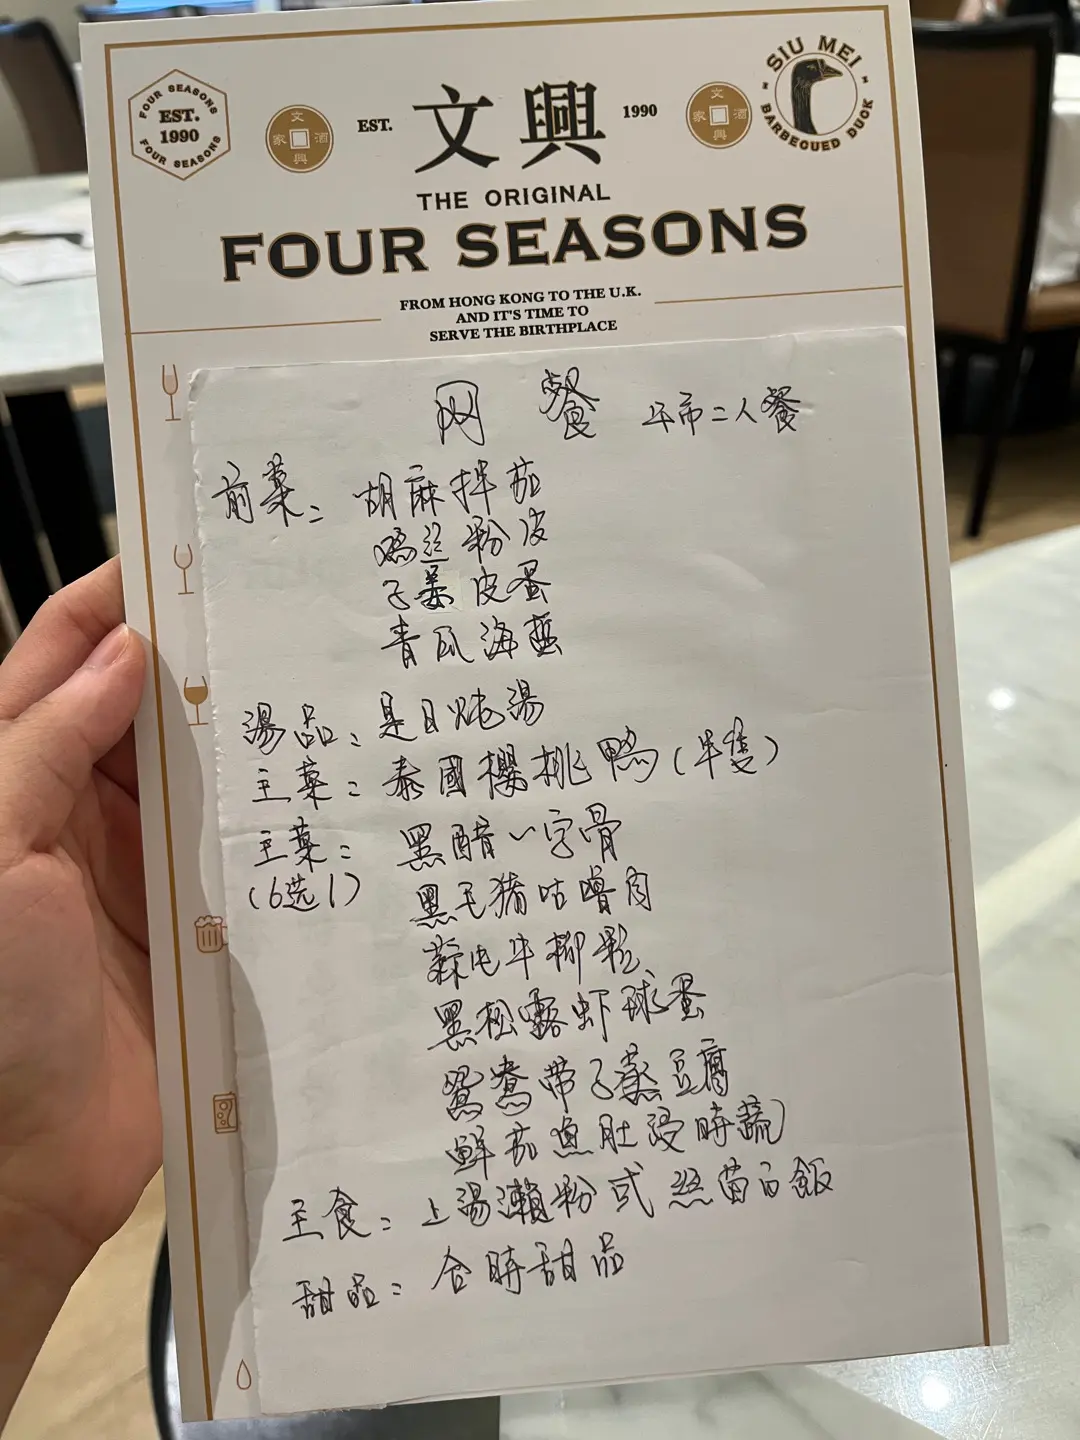 FOUR SEASONS
EST.
1990
FOUR SEASONS
文
家 酒
興
EST.
文興
1990
文
家 酒
興
SIU MEI
BARBEGUED DUCK
THE ORIGINAL
FOUR SEASONS
FROM HONG KONG TO THE U.K.
AND IT'S TIME TO
SERVE THE BIRTHPLACE
网 餐 午市二人餐
前菜: 胡麻拌茄
鸡丝粉皮
子姜皮蛋
青瓜海蜇
湯品: 是日炖湯
主菜: 泰國櫻桃鸭(半隻)
主菜: 黑醋一字骨
(6选1)
黑毛猪咕噜肉
蒜屯牛柳粒
黑松露虾球蛋
鴛鴦带子蒸豆腐
鮮茄魚肚浸時蔬
主食: 上湯瀨粉或丝苗白飯
甜品: 合時甜品